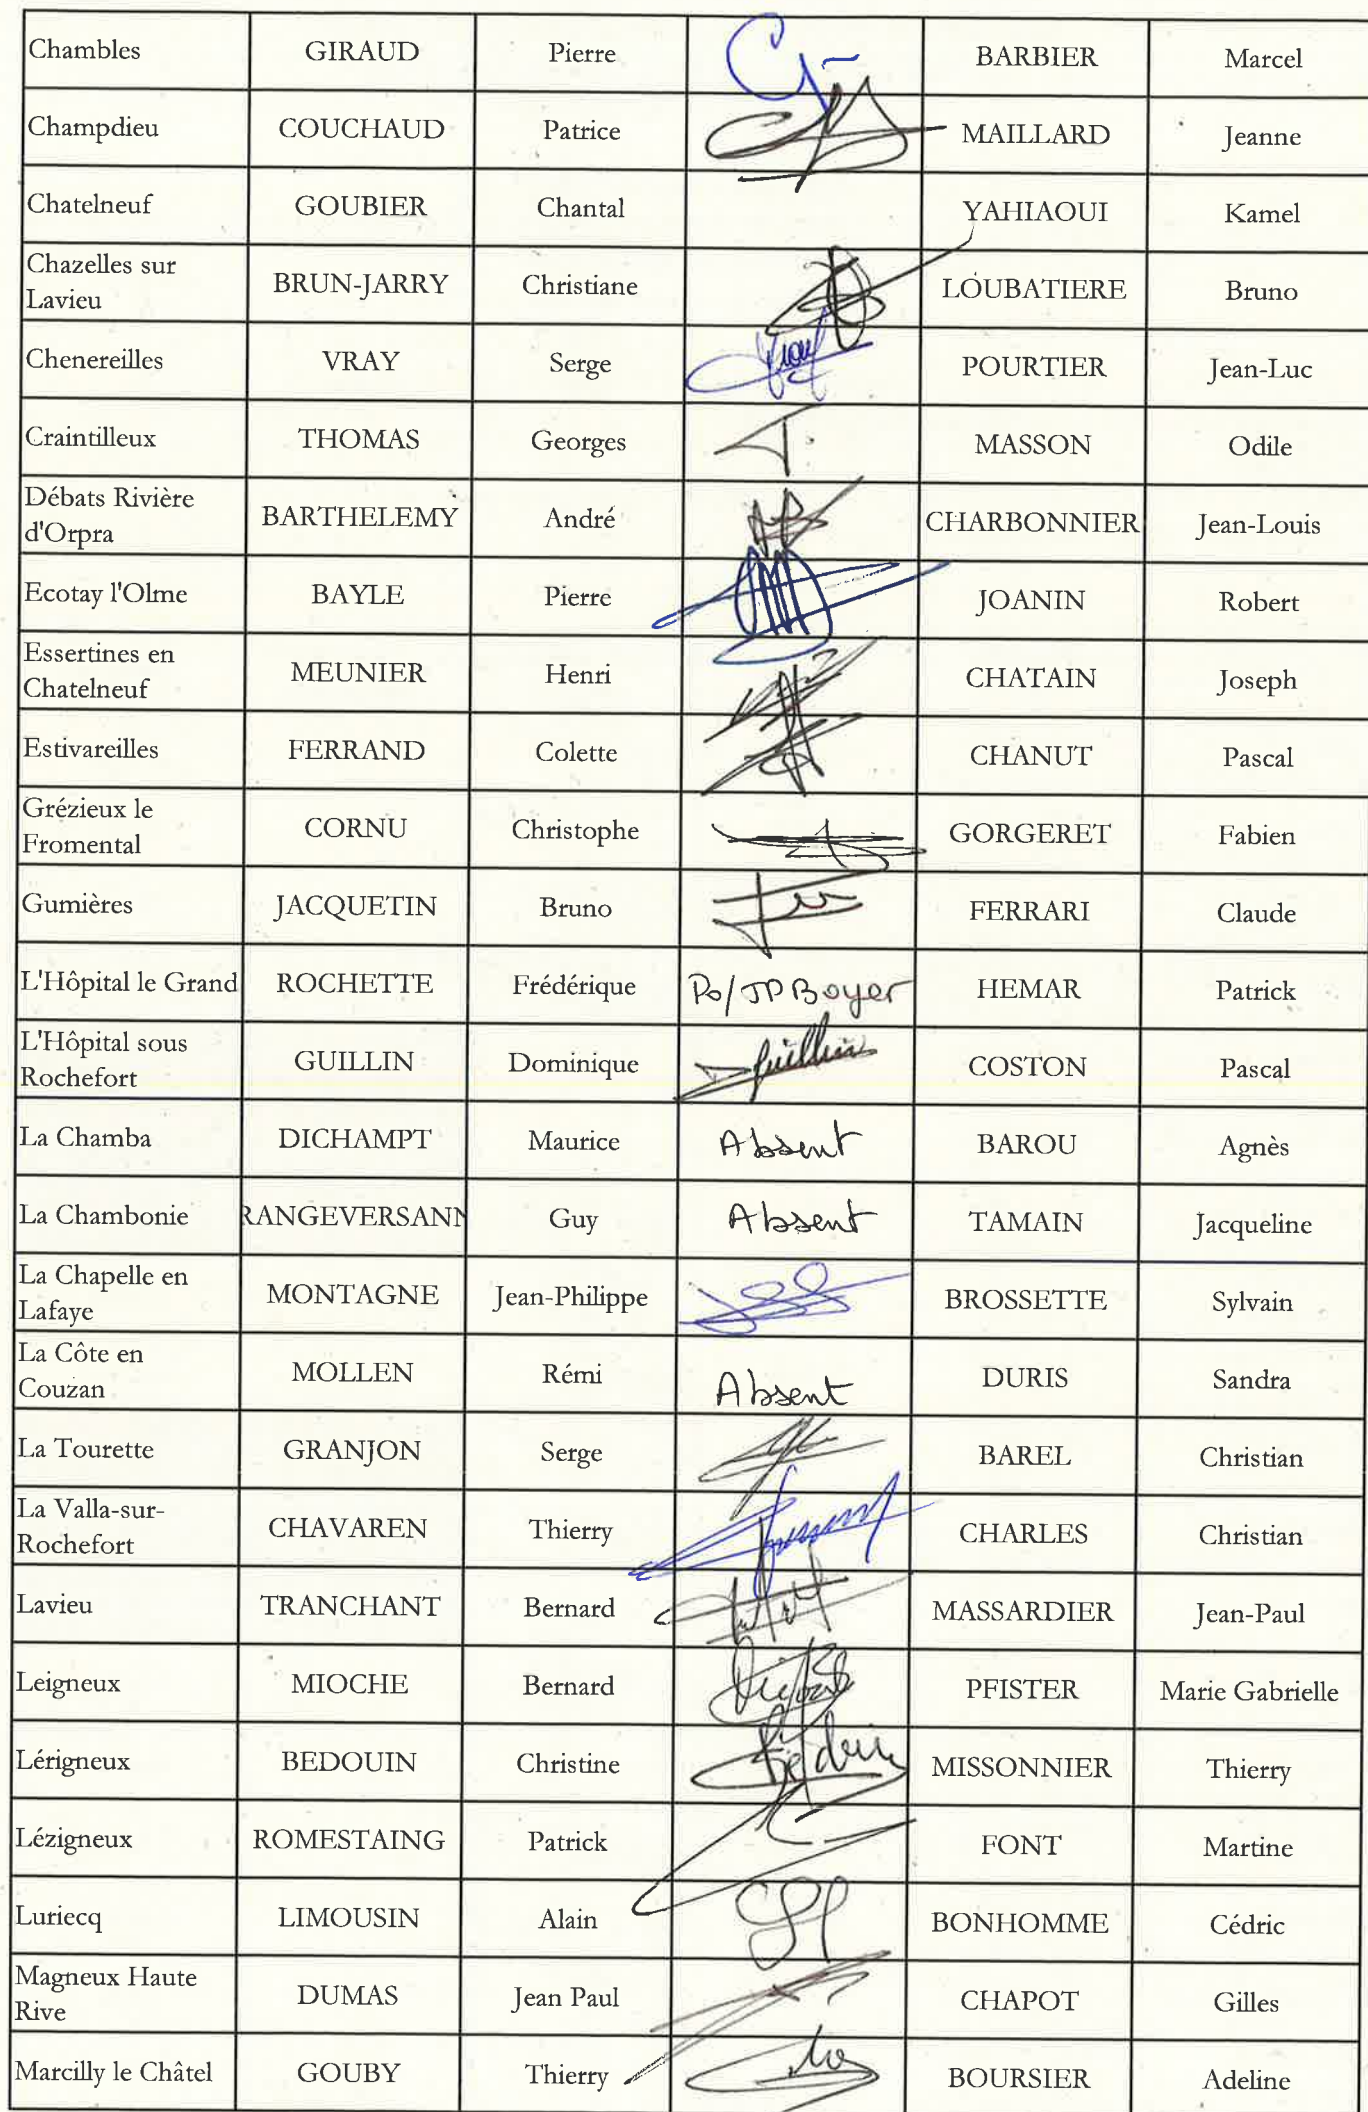 Chambles GIRAUD Pierre BARBIER Marcel
Champdieu COUCHAUD Patrice MAILLARD Jeanne
Chatelneuf GOUBIER Chantal YAHIAOUI Kamel
Chazelles sur
Lavieu BRUN-JARRY Christiane LOUBATIERE Bruno
Chenereilles VRAY Serge POURTIER Jean-Luc
Craintilleux THOMAS Georges MASSON Odile
Débats Rivière
d'Orpra BARTHELEMY André CHARBONNIER Jean-Louis
Ecotay l'Olme BAYLE Pierre JOANIN Robert
Essertines en
Chatelneuf MEUNIER Henri CHATAIN Joseph
Estivareilles FERRAND Colette CHANUT Pascal
Grézieux le
Fromental CORNU Christophe GORGERET Fabien
Gumières JACQUETIN Bruno FERRARI Claude
L'Hôpital le Grand ROCHETTE Frédérique Po/JP Boyer HEMAR Patrick
L'Hôpital sous
Rochefort GUILLIN Dominique Guillin COSTON Pascal
La Chamba DICHAMPT Maurice Absent BAROU Agnès
La Chambonie RANGEVERSANN Guy Absent TAMAIN Jacqueline
La Chapelle en
Lafaye MONTAGNE Jean-Philippe BROSSETTE Sylvain
La Côte en
Couzan MOLLEN Rémi Absent DURIS Sandra
La Tourette GRANJON Serge BAREL Christian
La Valla-sur-
Rochefort CHAVAREN Thierry CHARLES Christian
Lavieu TRANCHANT Bernard MASSARDIER Jean-Paul
Leigneux MIOCHE Bernard PFISTER Marie Gabrielle
Lérigneux BEDOUIN Christine MISSONNIER Thierry
Lézigneux ROMESTAING Patrick FONT Martine
Luriecq LIMOUSIN Alain BONHOMME Cédric
Magneux Haute
Rive DUMAS Jean Paul CHAPOT Gilles
Marcilly le Châtel GOUBY Thierry BOURSIER Adeline